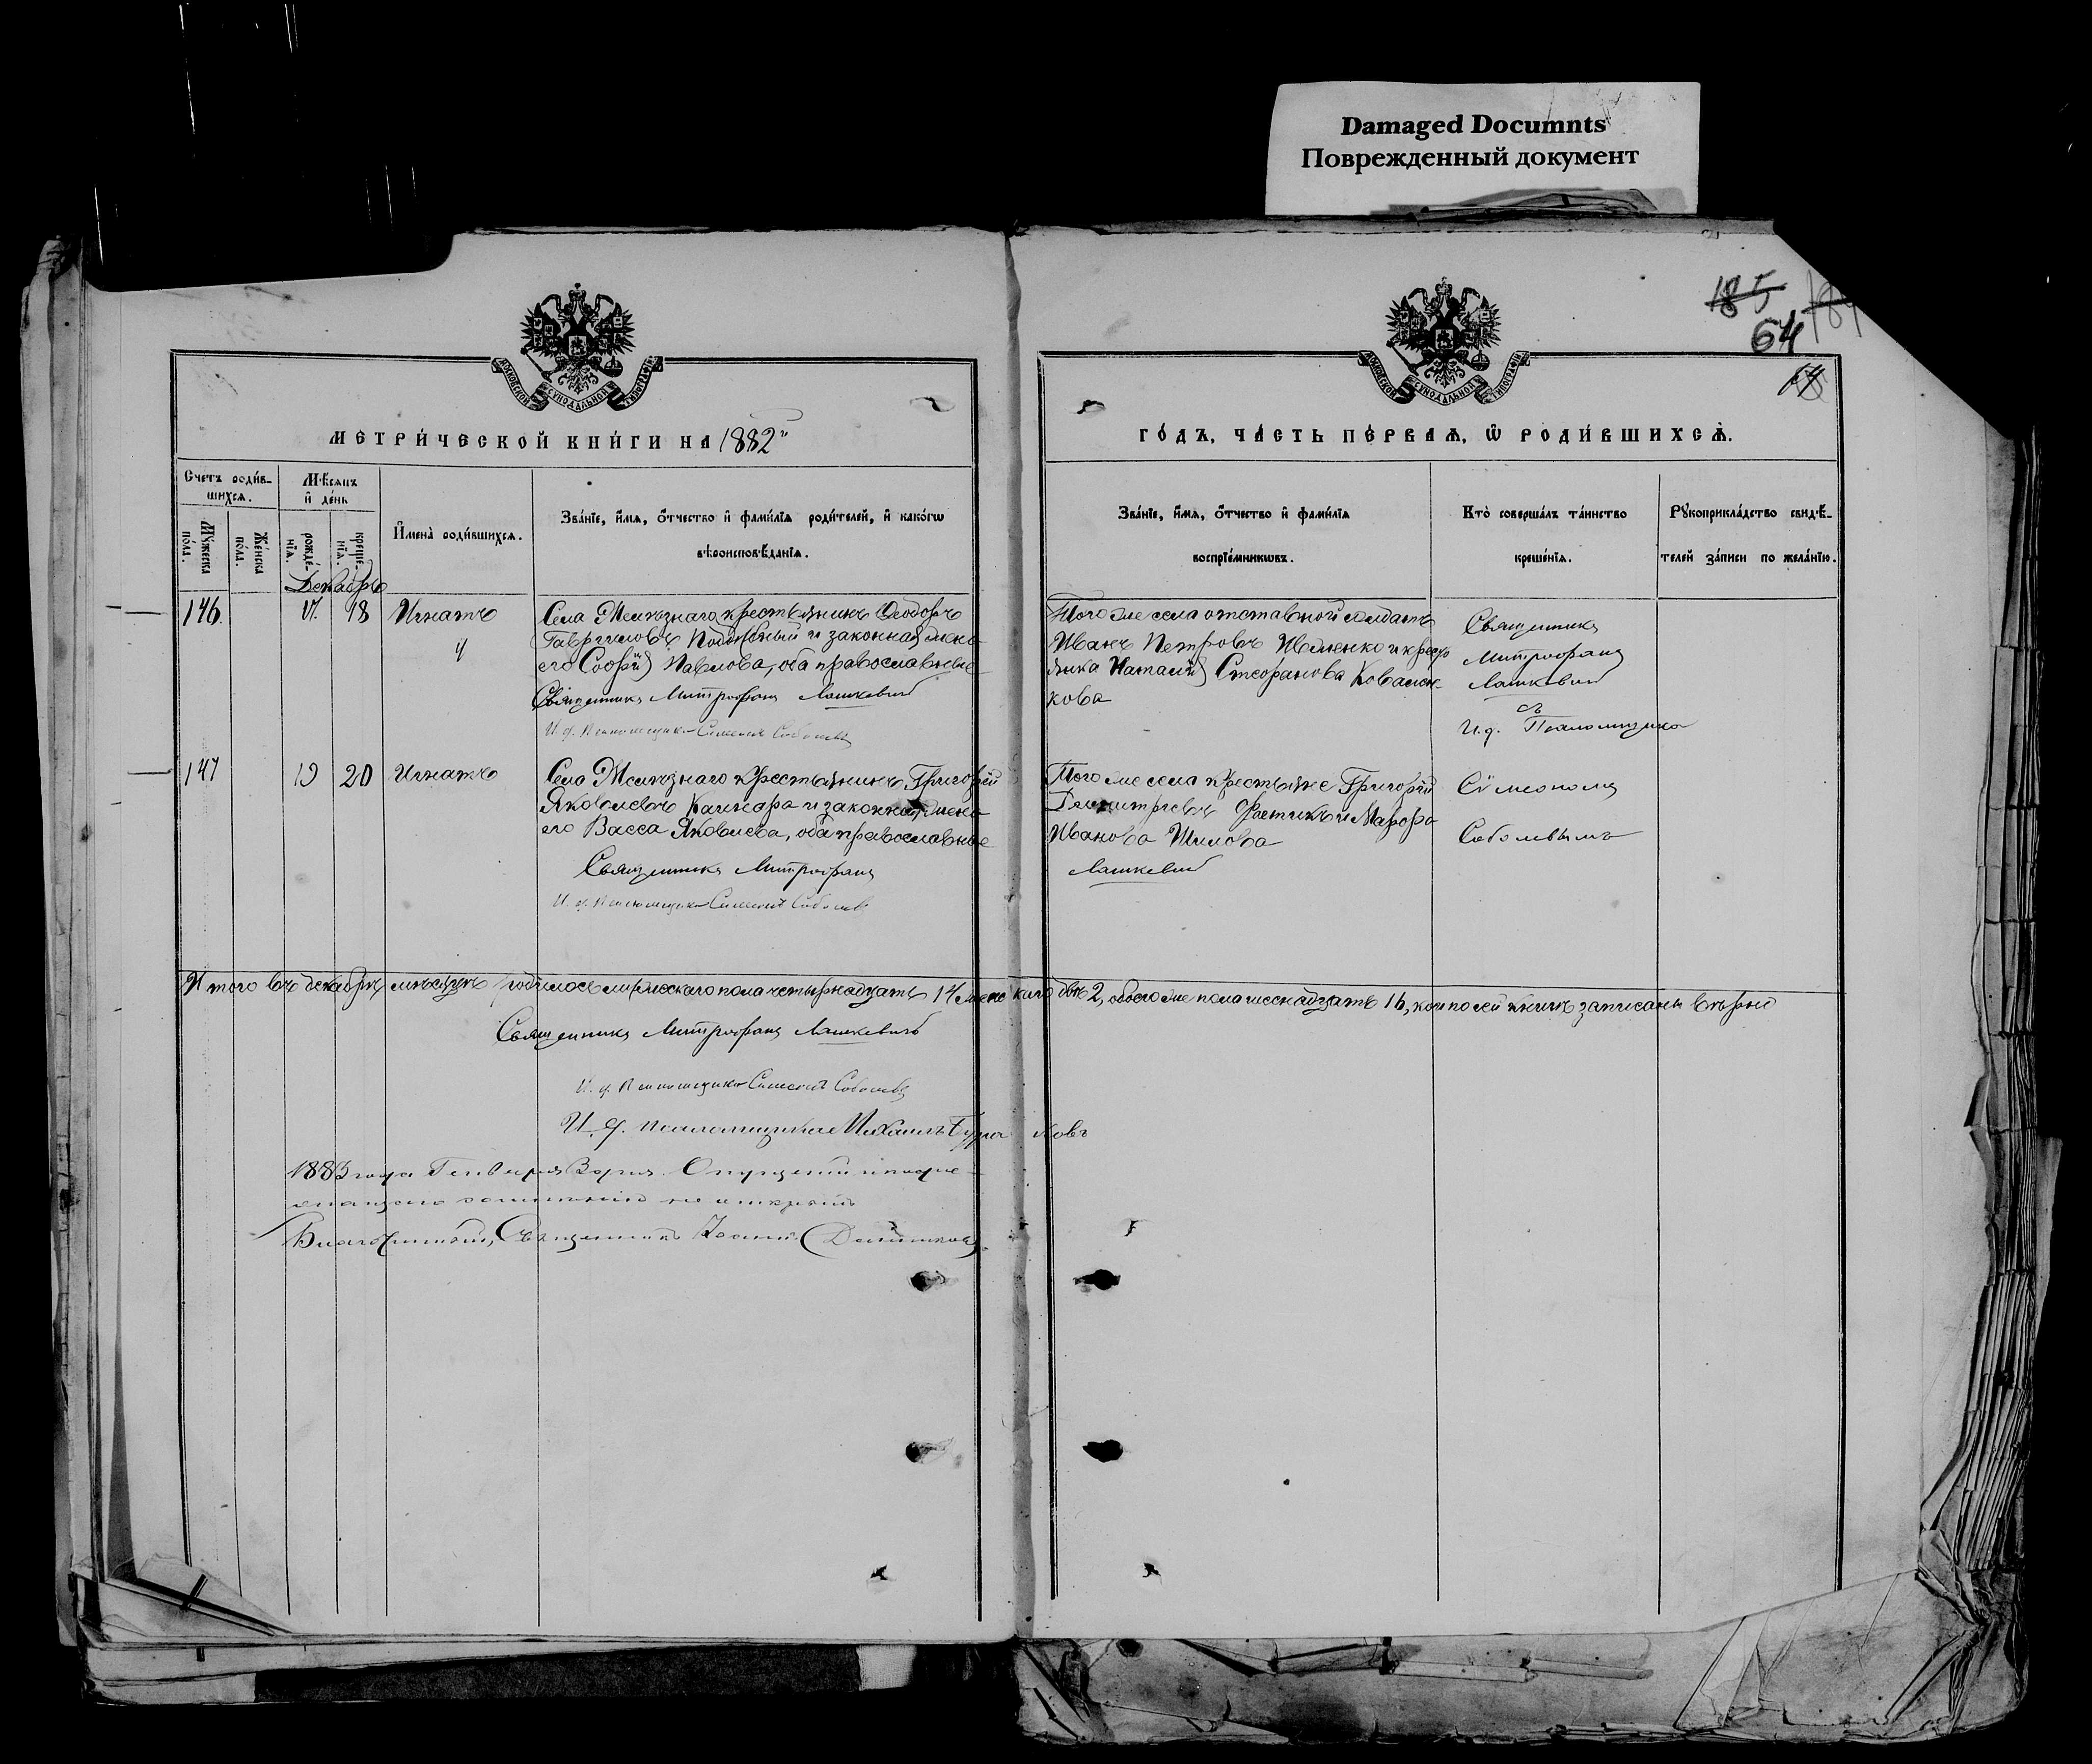 Damaged Documnts
Поврежденный документ
185
64
МОСКОВСКОЙ СѴНОДАЛЬНОЙ ТИПОГРАФІИ
МОСКОВСКОЙ СѴНОДАЛЬНОЙ ТИПОГРАФІИ
МЕТРИ́ЧЕСКОЙ КНИ́ГИ НА 1882й
ГО́ДЪ, ЧА́СТЬ ПЕ́РВАѦ, Ѡ҆ РОДИ́ВШИХСѦ.
Счетъ роди́в-
шихсѧ.
Мꙋ́жеска
по́ла.
Же́нска
по́ла.
Мѣ́сѧцъ
и҆ де́нь
рожде́-
нїѧ.
креще́-
нїѧ.
И҆мена̀ роди́вшихсѧ.
Зва́нїе, и҆́мѧ, ѻ҆́тчество и҆ фами́лїѧ роди́телей, и҆ како́гѡ
вѣроисповѣ́данїѧ.
Зва́нїе, и҆́мѧ, ѻ҆́тчество и҆ фами́лїѧ
воспрїе́мникѡвъ.
Кто̀ соверша́лъ та́инство
креще́нїѧ.
Рꙋкоприкла́дство свидѣ́-
телей за́писи по жела́нїю.
Декабрь
146. 17. 18 Игнатъ
Села Желѣзнаго крестьянинъ Ѳеодоръ
Гавриловъ и законная жена
его Софія Павлова, оба православные
Священникъ Митрофанъ Лашкевичъ
И. д. Псаломщика Симеонъ Соболевъ
Того же села отставной солдатъ
Иванъ Петровъ Ивленко и кресть
янка Наталія Стефанова Ковален-
кова
Священникъ
Митрофанъ
Лашкевичъ
съ
И. д. Псаломщика
147 19 20 Игнатъ
Села Желѣзнаго крестьянинъ Григорій
Яковлевъ и законная жена
его Васса Яковлева, оба православные
Священникъ Митрофанъ
И. д. Псаломщика Симеонъ Соболевъ
Того же села крестьяне Григорій
Димитріевъ и Марфа
Иванова Шилова
Лашкевичъ
Сѵмеономъ
Соболевымъ
Итого въ декабрѣ мѣсяцѣ родилось мужескаго пола четырнадцать 14 женскаго двѣ 2, обоего же пола шеснадцать 16, кои по сей книгѣ записаны вѣрно
Священникъ Митрофанъ Лашкевичъ
И. д. Псаломщика Симеонъ Соболевъ
И. д. псаломщика Михаилъ
1883 года Генваря
не открыто
Благочинный, Священникъ Іоаннъ